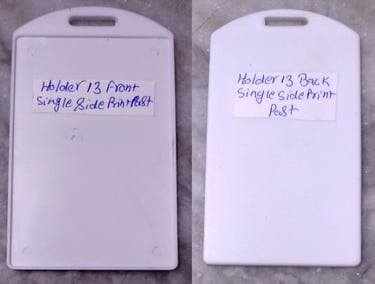 Holder 13 Front
Single Side Print Past
Holder 13 Back
Single Side Print
Past